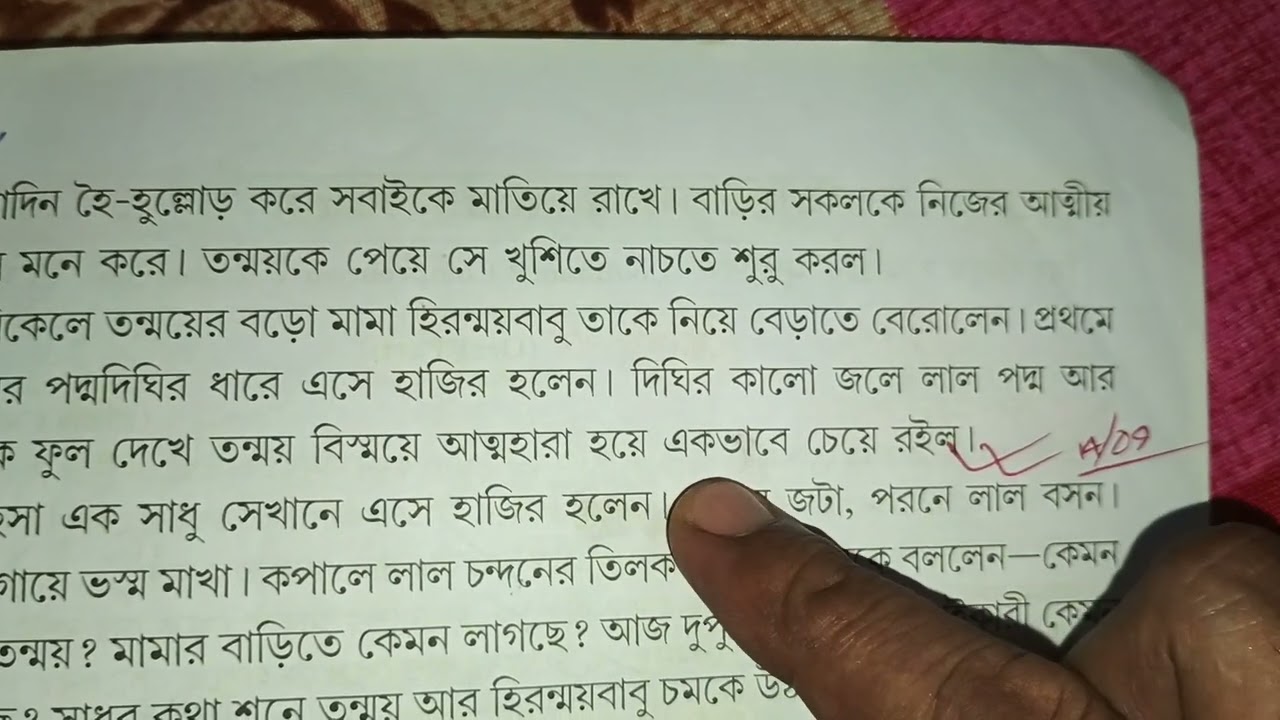 হৈ-হুল্লোড় করে সবাইকে মাতিয়ে রাখে। বাড়ির সকলকে নিজের আত্মীয়
মনে করে। তন্ময়কে পেয়ে সে খুশিতে নাচতে শুরু করল।
তন্ময়ের বড়ো মামা হিরন্ময়বাবু তাকে নিয়ে বেড়াতে বেরোলেন। প্রথমে
পদ্মদিঘির ধারে এসে হাজির হলেন। দিঘির কালো জলে লাল পদ্ম আর
ফুল দেখে তন্ময় বিস্ময়ে আত্মহারা হয়ে একভাবে চেয়ে রইল।
এক সাধু সেখানে এসে হাজির হলেন। জটা, পরনে লাল বসন।
গায়ে ভস্ম মাখা। কপালে লাল চন্দনের তিলক বললেন—কেমন
তন্ময়? মামার বাড়িতে কেমন লাগছে? আজ
তন্ময় আর হিরন্ময়বাবু চমকে